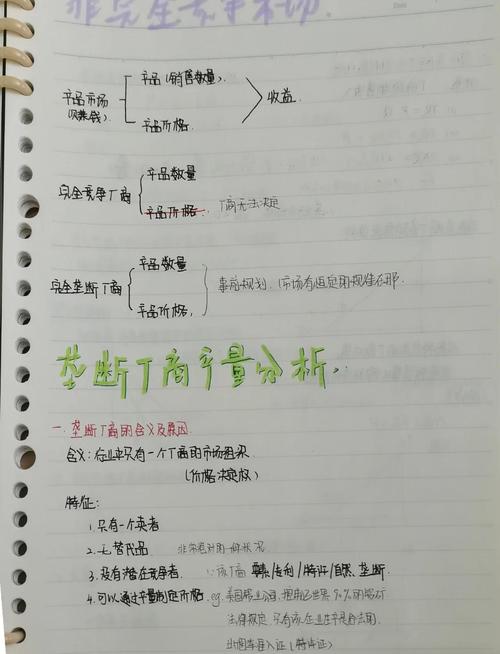 非完全竞争市场.
产品(销售数量)
产品市场
(赚钱)
收益
产品价格
产品数量
完全竞争厂商
产品价格. 厂商无法决定
产品数量
完全垄断厂商
事前规划.(市场有恒定的规律在那.
产品价格.
垄断厂商产量分析.
一. 垄断厂商的含义及原因.
含义: 行业中只有一个厂商的市场组织
(价格决定权)
特征:
1.只有一个卖者
2.无替代品 非常绝对的一种状况
3.没有潜在竞争者. 该厂商 /专利/特许/自然 垄断.
4.可以通过产量制定价格. eg. 美国铝业公司. 90%的铝矿
法律规定 只有该企业生产是合法的.
(特许证)